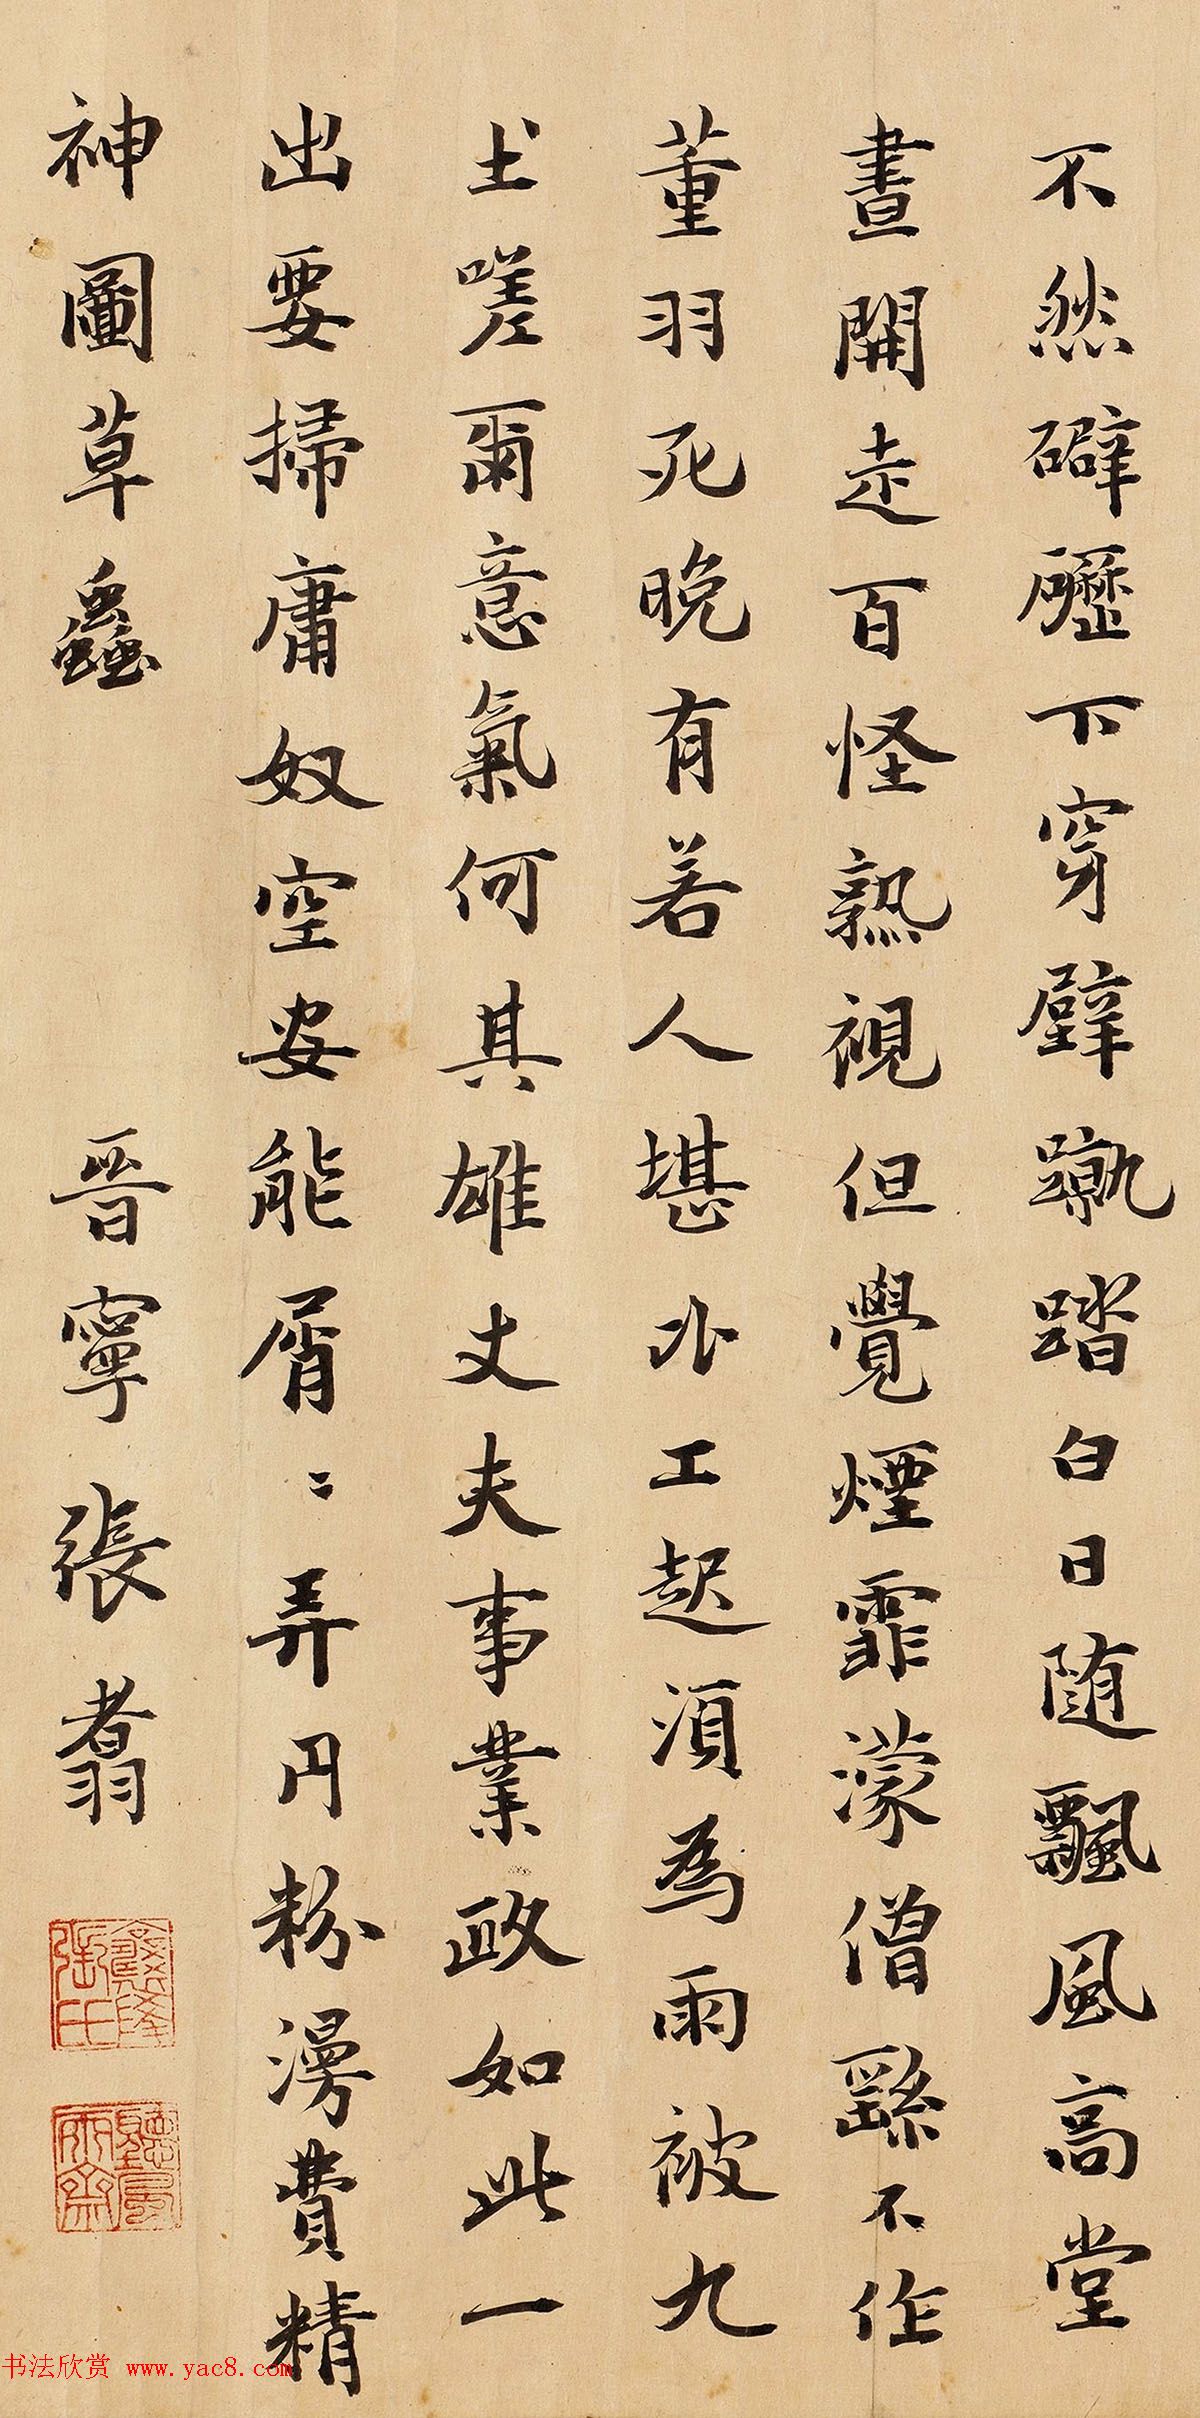 不然礔礰下穿壁蹴踏白日随飄風高堂
晝開走百怪熟視但覺煙霏濛僧繇不作
董羽死晚有若人堪比工起須為雨被九
土嗟爾意氣何其雄丈夫事業政如此一
出要掃庸奴空安能屑〻弄丹粉漫費精
神圖草蟲
晉寧張翥
張氏
雨齋
书法欣赏 www.yac8.com